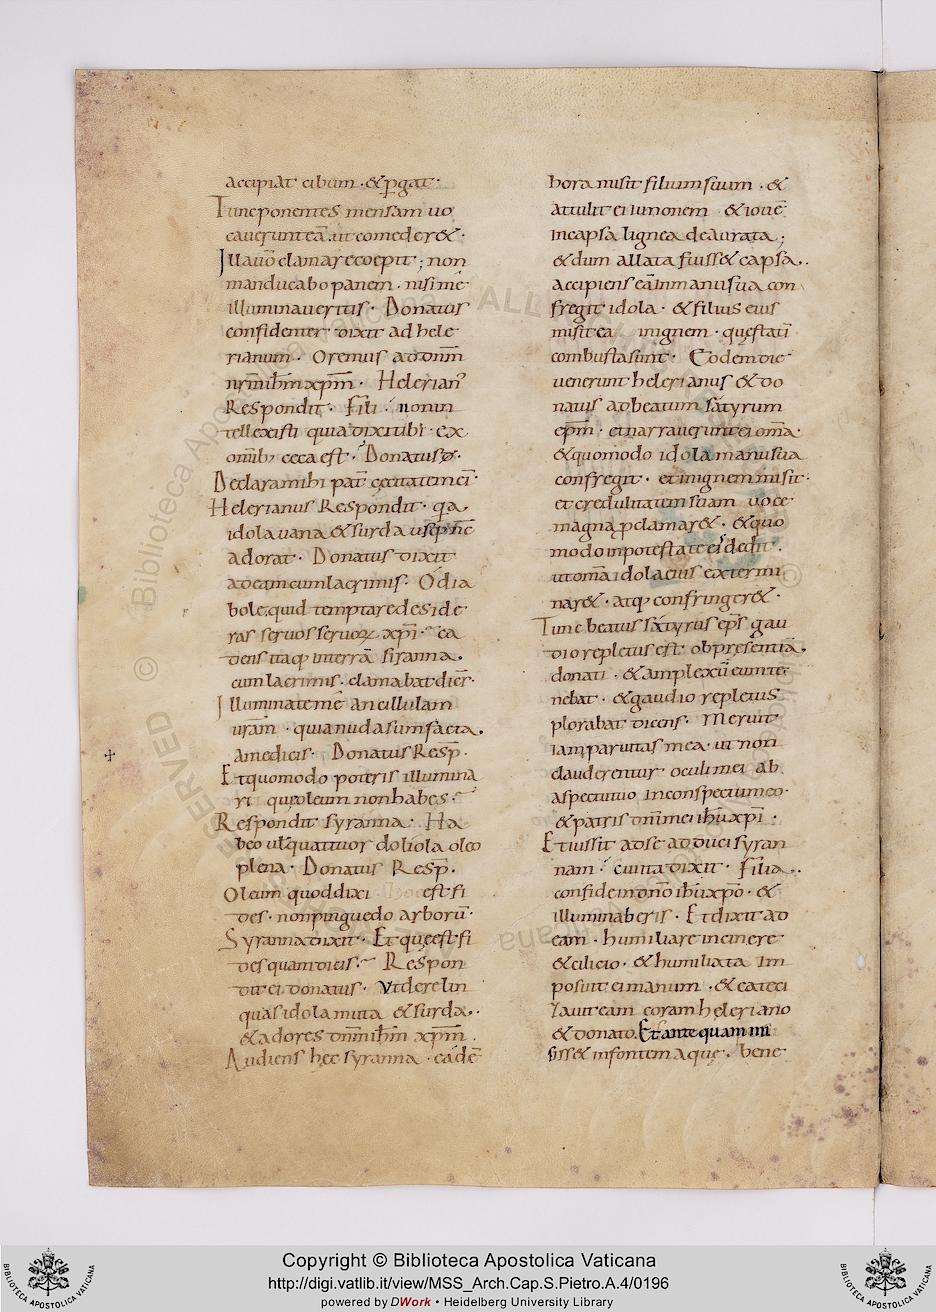 accipiat cibum · & p̱gat ·
Tunc ponentes mensam uo
cauerunt eā . ut comeder& ·
Illa uō clamare coepit ; non
manducabo panem · nisi me
illuminaueritis · Donatus
confidenter dixit ad hele
rianum · Oremus ad dn̄m
nr̄m ihm̄ xp̄m · Helerian'
Respondit · Fili · non in
tellexisti quia dixi tibi · ex
omīb; ceca est · Donatus
Declara mihi pat̄
Helerianus Respondit · qa
idola uana & surda
adorat · Donatus dixit
ad eam cum lacrimis · O dia
bole, quid temptare deside
ras seruos seruoꝝ xp̄i · ca
dens itaq; in terrā siranna .
cum lacrimis · clamabat dic̄s ·
Illuminate me ancillulam
ur̄am · quia nuda sum facta .
a medicis · Donatus Resp̄ ·
Et quomodo poteris illumina
ri quę oleum non habes ·
Respondit syranna · Ha
beo quattuor doliola oleo
plena · Donatus Resp̄ ·
Oleum quod dixi est fi
des · non pinguedo arborū ·
Syranna dixit · Et quę est fi
des quam dicis · Respon
dit ei donatus · Vt derelin
quas idola muta & surda . .
& adores dn̄m ihm̄ xp̄m .
Audiens hęc syranna · eadē
hora misit filium suum · &
attulit ei iunonem & iouē
in capsa lignea deaurata ;
& dum allata fuiss& capsa . .
accipiens eā in manu sua con
fregit idola · & filius eius
misit ea in ignem · quę statī
combusta sunt · Eodem die
uenerunt helerianus & do
natus ad beatum satyrum
ep̄m · et narrauerunt ei om̄a ·
& quomodo idola manu sua
confregit · et in ignem misit ·
et credulitatem suam uoce
magna p̱clamar& · & quo
modo in potestate ei dedit .
ut om̄a idola eius extermi
nar& · atq; confringer& ·
Tunc beatus satyrus ep̄s gau
dio repletus est ob presentiā .
donati · & amplexū eum te
nebat · & gaudio repletus
plorabat dicens · Meruit
iam paruitas mea · ut non
clauderentur oculi mei ab
aspectu tuo in conspectu meo ·
& patris dn̄i mei ihū xp̄i ·
Et iussit ad se adduci syran
nam · cui ita dixit · Filia . .
confide in dn̄o ihū xp̄o · &
illuminaberis · Et dixit ad
eam · humiliare in cinere
& cilicio · & humiliata im
posuit ei manum · & cateci
zauit eam coram heleriano
& donato . Et ante quam mi
siss& in fontem aquę · bene
Copyright © Biblioteca Apostolica Vaticana
http://digi.vatlib.it/view/MSS_Arch.Cap.S.Pietro.A.4/0196
powered by DWork • Heidelberg University Library